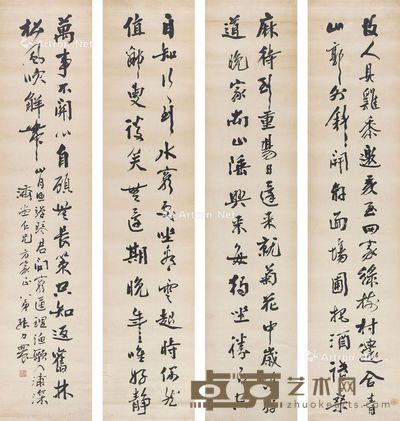 故人具雞黍邀我至田家綠樹村邊合青
山郭外斜開軒面場圃把酒話桑
麻待到重陽日還來就菊花中歲頗好
道晚家南山陲興來每獨往勝事空
自知行到水窮處坐看雲起時偶然
值鄰叟談笑無還期晚年唯好靜
萬事不關心自顧無長策空知返舊林
松風吹解帶山月照彈琴君問窮通理漁歌入浦深
仁兄方家正 弟張
艺术网